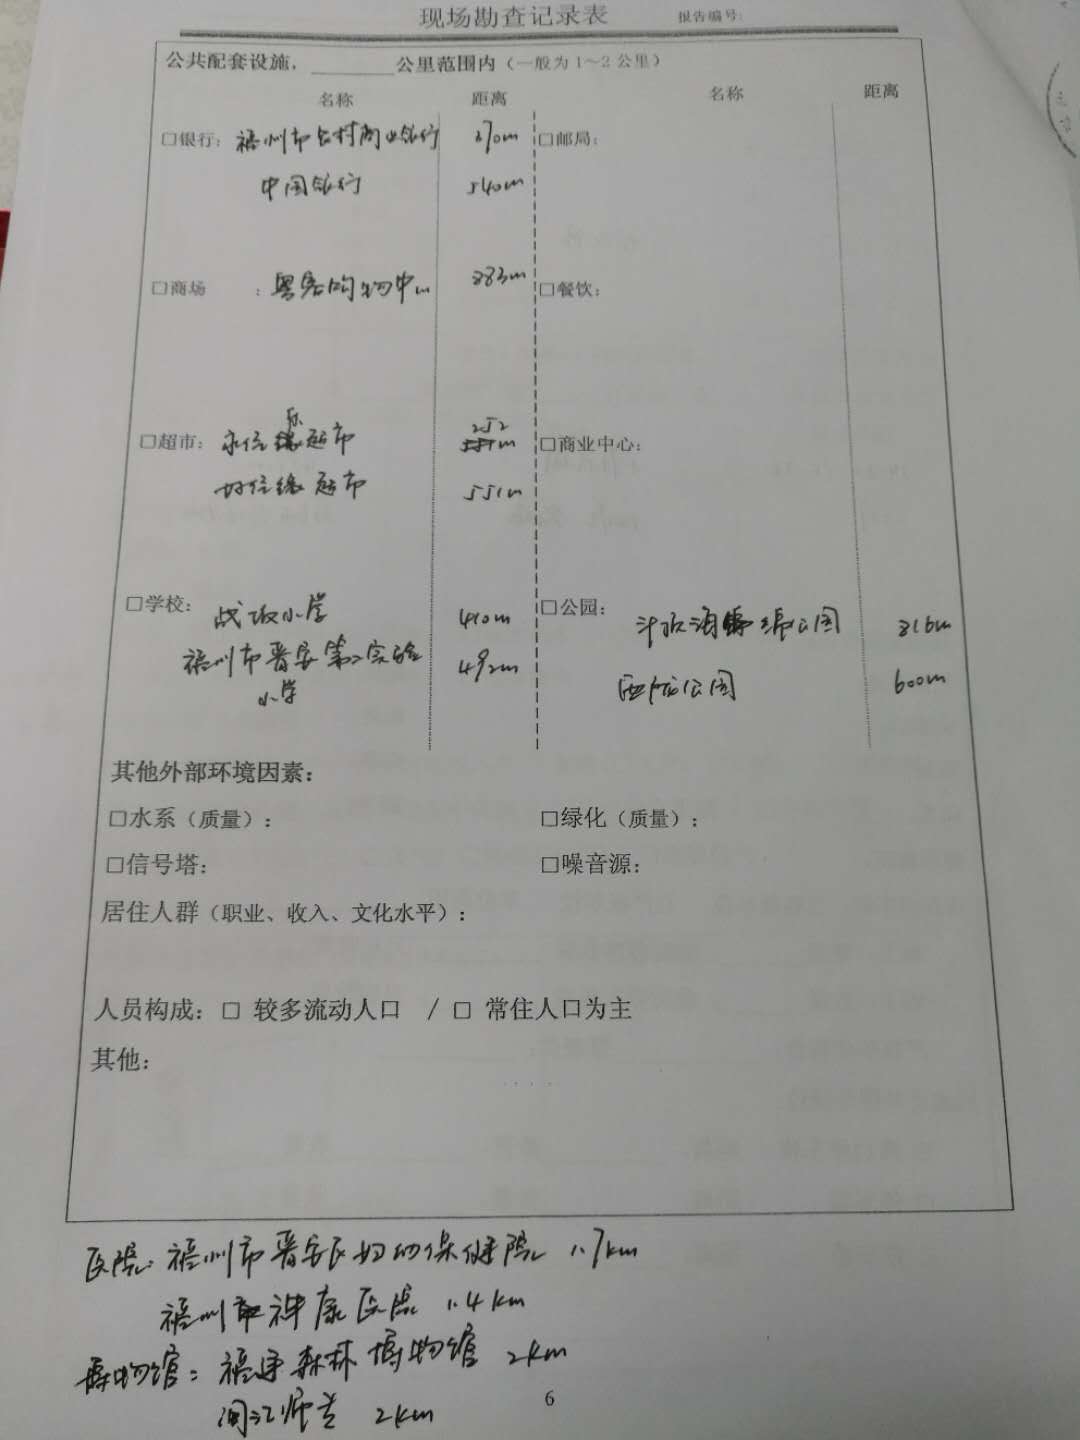 现场勘查记录表 报告编号:
公共配套设施，________公里范围内（一般为1～2公里）
名称 距离 名称 距离
□银行：福州市农村商业银行 270m □邮局：
中国银行 540m
□商场 ： 购物中心 383m □餐饮：
□超市：永信乐超市 252m □商业中心：
好信缘超市 551m
□学校：战坂小学 410m □公园： 公园 816m
福州市晋安第二实验 492m 公园 600m
小学
其他外部环境因素：
□水系（质量）： □绿化（质量）：
□信号塔： □噪音源：
居住人群（职业、收入、文化水平）：
人员构成：□ 较多流动人口 / □ 常住人口为主
其他：
医院：福州市晋安区妇幼保健院 1.7km
福州市神康医院 1.4km
博物馆：福建森林博物馆 2km
闽江师专 2km
6